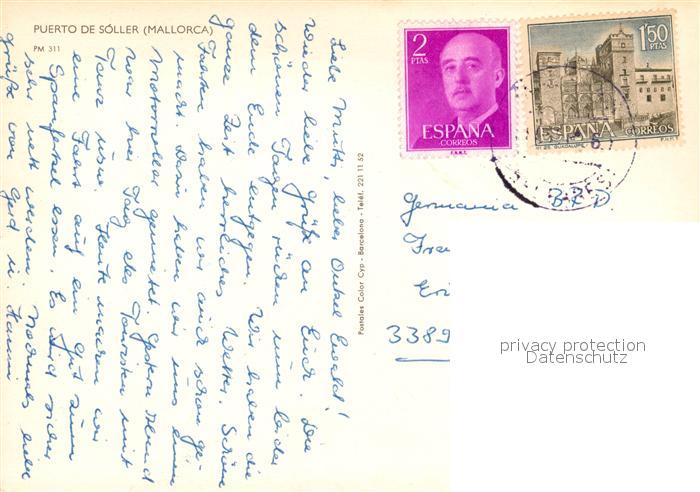 PUERTO DE SÓLLER (MALLORCA)
PM 311
Liebe Mutti, lieber Onkel Ewald!
Wieder liebe Grüße an Euch. Die
schönen Tage rücken nun leider
dem Ende entgegen. Wir haben die
ganze Zeit herrliches Wetter. Schöne
Fahrten haben wir auch schon ge-
macht. Dann haben wir uns einen
Motorroller gemietet. Gestern Abend
war hier Tag des Touristen mit
Tanz usw. Heute machen wir
eine Fahrt auf ein Gut zum
Spanferkel essen. Es wird sicher
sehr nett werden. Nochmals liebe
Grüße von Gerd u. Hanni
Postales Color Cyp - Barcelona - Teléf. 221 11 52
2
PTAS
ESPAÑA
CORREOS
F.N.M.T.
1'50
PTAS
ESPAÑA
CORREOS
Germania BRD
Fra
Eri
3389
privacy protection
Datenschutz